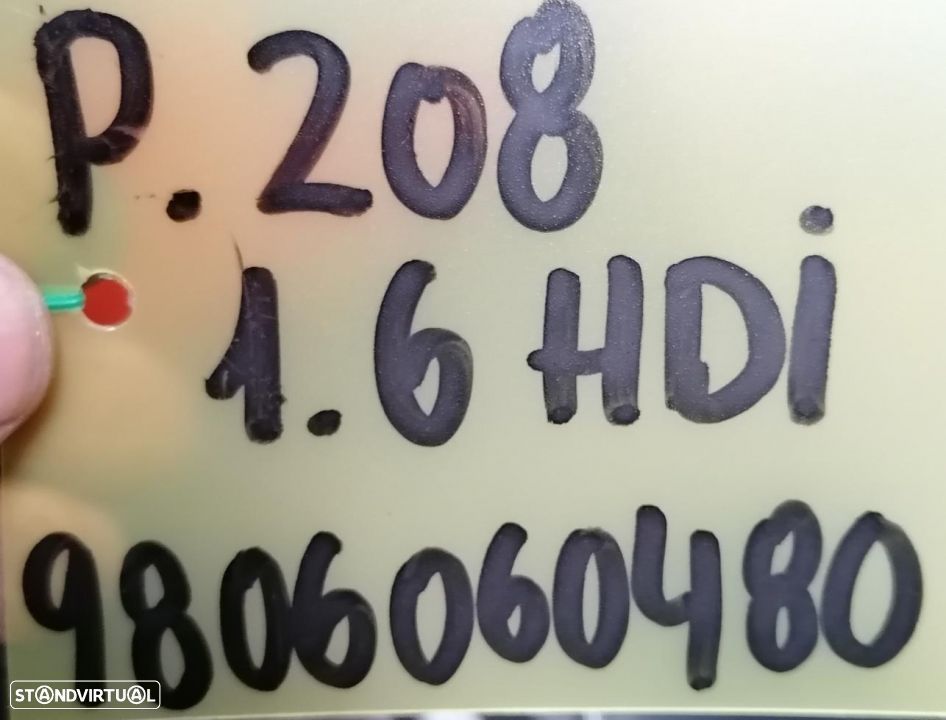 P. 208
1.6 HDi
9806060480
STANDVIRTUAL